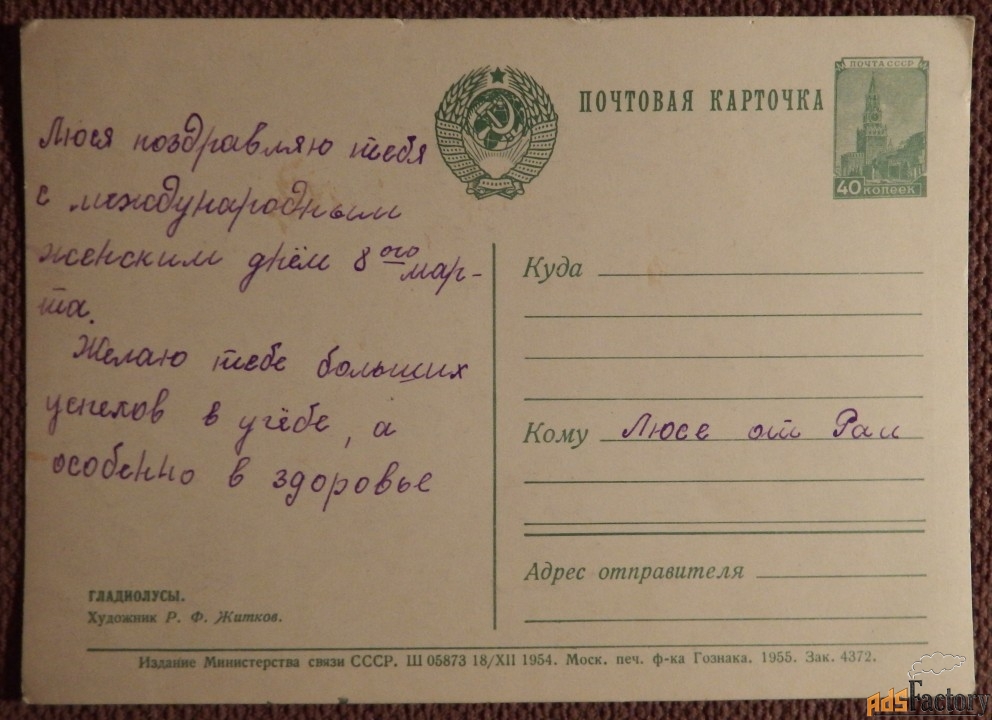 ПОЧТА СССР
ПОЧТОВАЯ КАРТОЧКА
40 КОПЕЕК
Люся поздравляю тебя
с международным
женским днём 8 ого мар-
та.
Желаю тебе больших
успехов в учёбе, а
особенно в здоровье
Куда
Кому Люсе от Раи
Адрес отправителя
ГЛАДИОЛУСЫ.
Художник Р. Ф. Житков.
Издание Министерства связи СССР. Ш 05873 18/XII 1954. Моск. печ. ф-ка Гознака. 1955. Зак. 4372.
AdsFactory